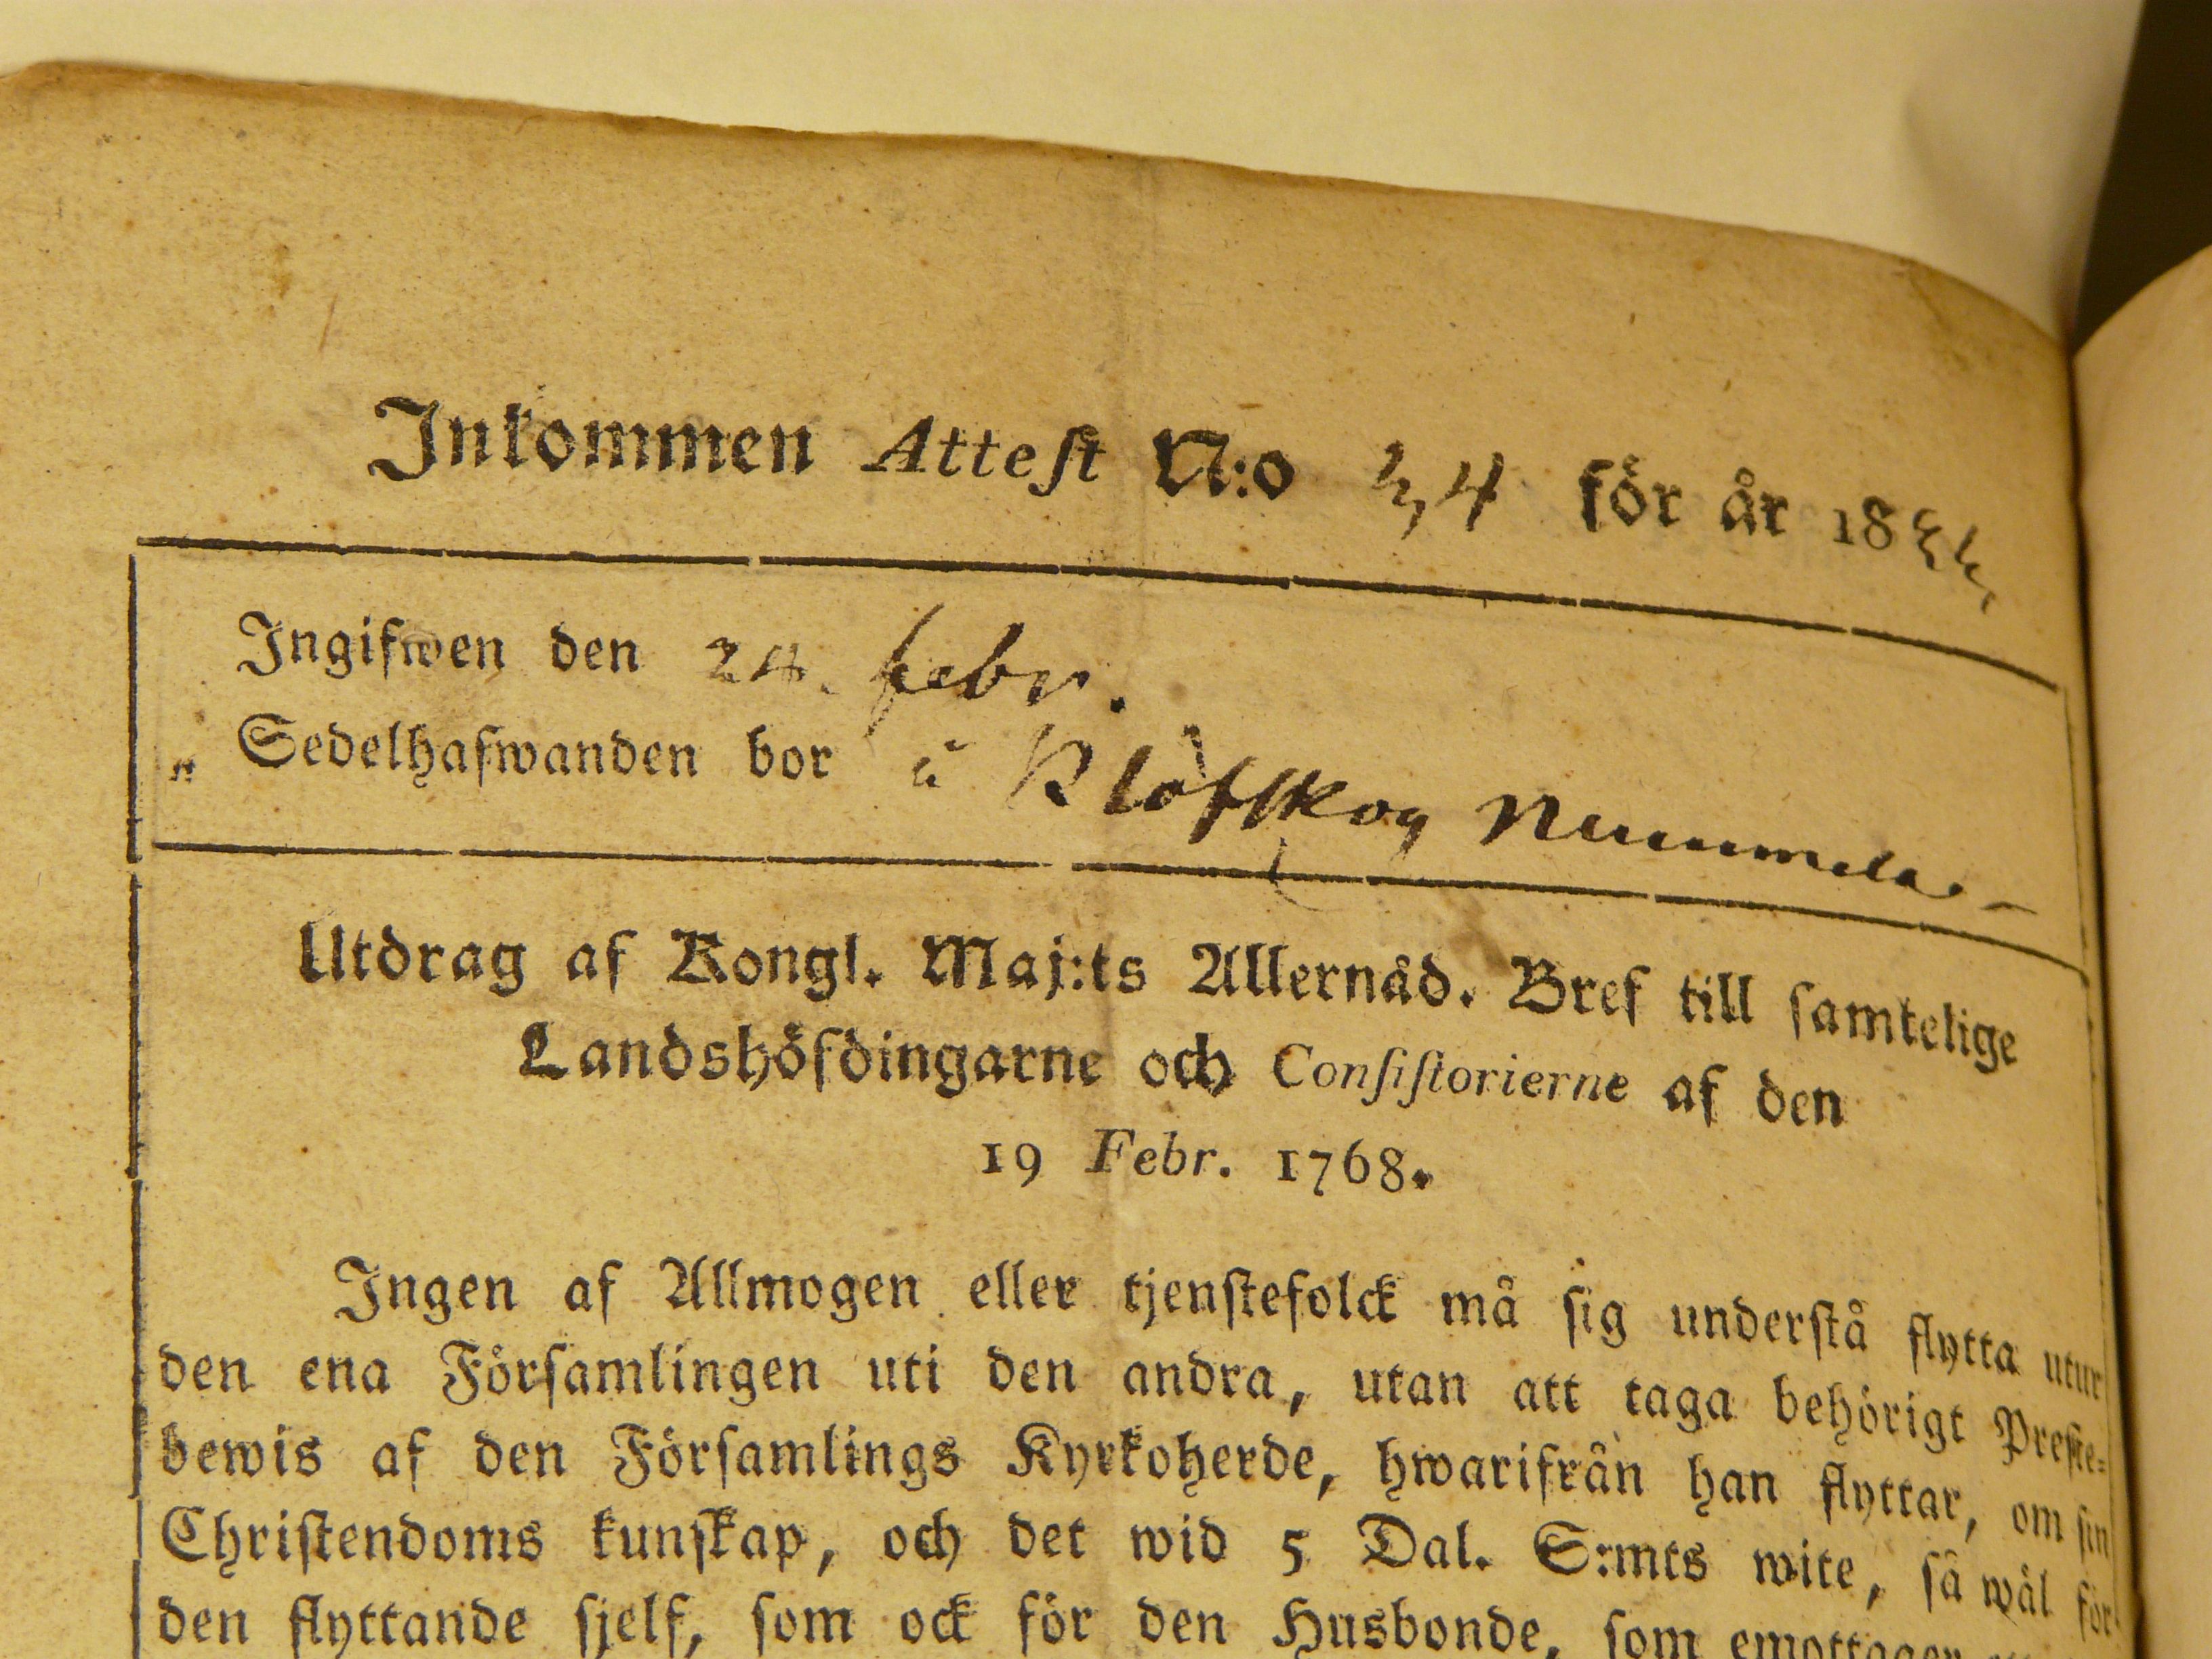 Inkommen Attest N:o 34 för år 18
Ingifwen den 24. febr.
„ Sedelhafwanden bor å Klöfskog Nummela
Utdrag af Kongl. Maj:ts Allernåd. Bref till samtelige
Landshöfdingarne och Consistorierne af den
19 Febr. 1768.
Ingen af Allmogen eller tjenstefolck må sig understå flytta utur
den ena Församlingen uti den andra, utan att taga behörigt Preste-
bewis af den Församlings Kyrkoherde, hwarifrån han flyttar, om sin
Christendoms kunskap, och det wid 5 Dal. S:mts wite, så wäl för
den flyttande sjelf, som ock för den Husbonde, som emottager